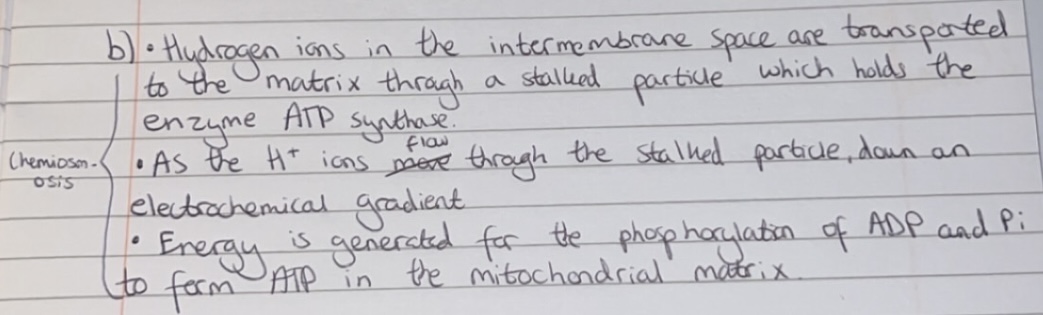 b) • Hydrogen ions in the intermembrane space are transported
to the matrix through a stalked particle which holds the
enzyme ATP synthase.
flow
Chemiosm-
osis
• As the H⁺ ions move through the stalked particle, down an
electrochemical gradient
• Energy is generated for the phosphorylation of ADP and Pi
to form ATP in the mitochondrial matrix.